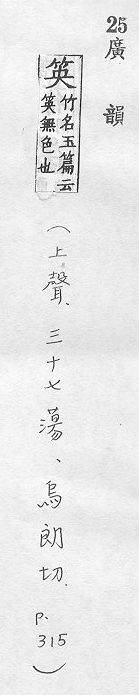 25 廣韻
䇦 竹名玉篇云
䇦無色也
(上聲、三十七蕩、烏朗切. p. 315)